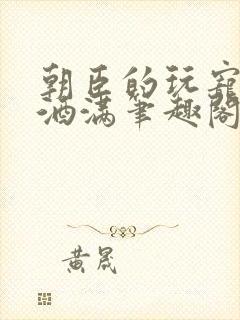 朝臣的玩宠
酒满笔趣阁
黄晟